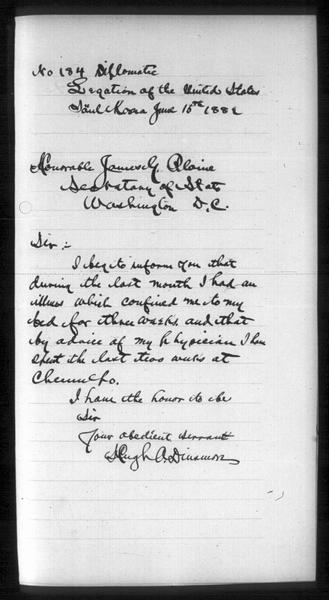 No 184 Diplomatic
Legation of the United States
Söul Korea June 15th 1889
Honorable James G. Blaine
Secretary of State
Washington D.C.
Sir:-
I beg to inform you that
during the last month I had an
illness which confined me to my
bed for three weeks, and that
by advice of my Physician I have
spent the last two weeks at
Chemulpo.
I have the honor to be
Sir
Your obedient servant
Hugh A. Dinsmore